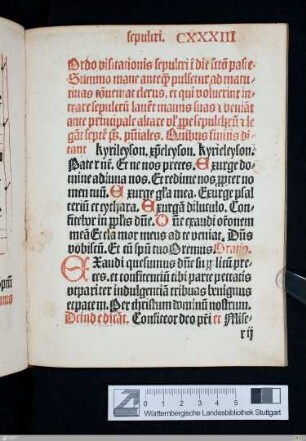 sepulcri. CXXXIII
Ordo visitationis sepulcri ī die scō pasce
Summo mane anteqȝ pulsetur ad matu
tinas ꝯueniat clerus. et qui voluerint in
trare sepulcrū lauēt manus suas ꝛ veniāt
ante principale altare vl ꝓpe sepulchꝝ ꝛ le
gāt septē ps. pn̄iales. Quibus finitis di
cant kyrieleyson. xp̄eleyson. kyrieleyson.
Pater nr̄. Et ne nos preces. Exurge do-
mine adiuua nos. Et redime nos ꝓpter no
men tuū. Exurge gl'a mea. Exurge psal
teriū et cythara. Exurgā diluculo. Con-
fitebor in pp̄lis dn̄e. Dn̄e exaudi oōnem
meā Et cla mor meus ad te veniat. Dn̄s
vobiscū. Et cū spū tuo Oremus Oratio.
EXaudi quesumus dn̄e suplicum pre
ces. et confitentiū tibi parce peccatis
vt pariter indulgentiā tribuas benignus
et pacem. Per christum dominū nostrum.
Deinde dicāt. Confiteor deo pr̄i et Mise-
r ij
cm 0 1 2 3 4 5
Württembergische Landesbibliothek Stuttgart